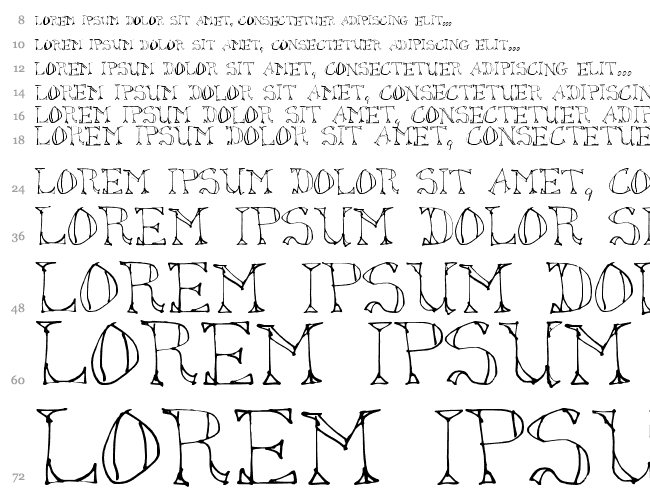 8 LOREM IPSUM DOLOR SIT AMET, CONSECTETUER ADIPISCING ELIT...
10 LOREM IPSUM DOLOR SIT AMET, CONSECTETUER ADIPISCING ELIT...
12 LOREM IPSUM DOLOR SIT AMET, CONSECTETUER ADIPISCING ELIT...
14 LOREM IPSUM DOLOR SIT AMET, CONSECTETUER ADIPISCIN
16 LOREM IPSUM DOLOR SIT AMET, CONSECTETUER ADIP
18 LOREM IPSUM DOLOR SIT AMET, CONSECTETUE
24 LOREM IPSUM DOLOR SIT AMET, CO
36 LOREM IPSUM DOLOR SI
48 LOREM IPSUM DOL
60 LOREM IPSUM
72 LOREM IPSU